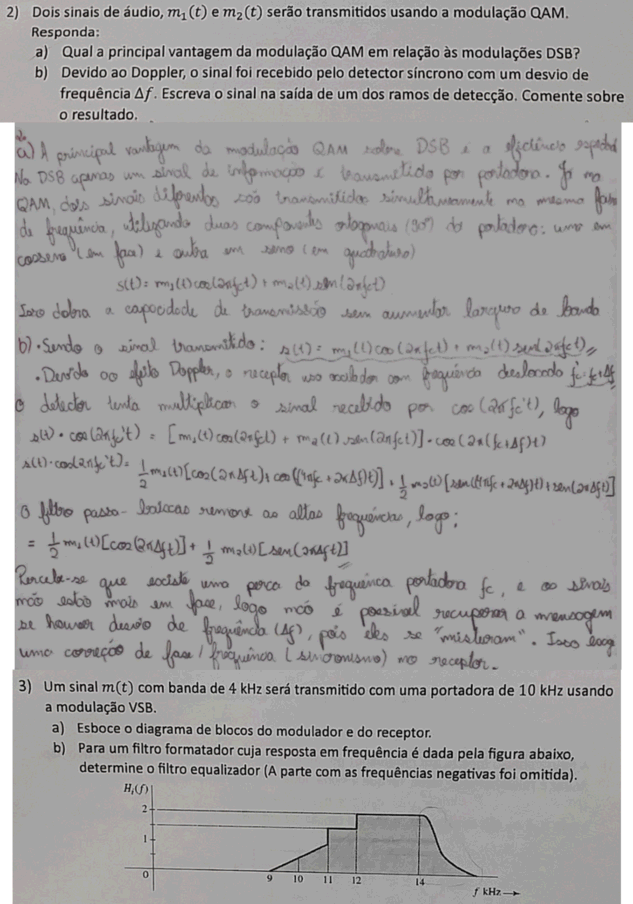 2) Dois sinais de áudio, m₁(t) e m₂(t) serão transmitidos usando a modulação QAM.
Responda:
a) Qual a principal vantagem da modulação QAM em relação às modulações DSB?
b) Devido ao Doppler, o sinal foi recebido pelo detector síncrono com um desvio de
frequência Δf. Escreva o sinal na saída de um dos ramos de detecção. Comente sobre
o resultado.
a) A principal vantagem da modulação QAM sobre DSB é a eficiência espectral
Na DSB apenas um sinal de informação é transmitido por portadora. Já na
QAM, dois sinais diferentes são transmitidos simultaneamente na mesma faixa
de frequência, utilizando duas componentes ortogonais (90°) da portadora: uma em
cosseno (em fase) e outra em seno (em quadratura)
s(t) = m₁(t)cos(2πfct) + m₂(t)sen(2πfct)
Isso dobra a capacidade de transmissão sem aumentar largura de banda
b) • Sendo o sinal transmitido: s(t) = m₁(t)cos(2πfct) + m₂(t)sen(2πfct)
• Devido ao efeito Doppler, o receptor usa oscilador com frequência deslocada fc'=fc+Δf
o detector tenta multiplicar o sinal recebido por cos(2πfc't), logo
s(t)·cos(2πfc't) = [m₁(t)cos(2πfct) + m₂(t)sen(2πfct)]·cos(2π(fc+Δf)t)
s(t)·cos(2πfc't) = 1/2 m₁(t)[cos(2πΔft)+cos((4πfc+2πΔf)t)] + 1/2 m₂(t)[sen((4πfc+2πΔf)t)+sen(2πΔft)]
O filtro passa-baixas remove as altas frequências, logo:
= 1/2 m₁(t)[cos(2πΔft)] + 1/2 m₂(t)[sen(2πΔft)]
Percebe-se que existe uma perca da frequência portadora fc, e os sinais
não estão mais em fase, logo não é possível recuperar a mensagem
se houver desvio de frequência (Δf), pois eles se "misturam". Isso
uma correção de fase/frequência (sincronismo) no receptor.
3) Um sinal m(t) com banda de 4 kHz será transmitido com uma portadora de 10 kHz usando
a modulação VSB.
a) Esboce o diagrama de blocos do modulador e do receptor.
b) Para um filtro formatador cuja resposta em frequência é dada pela figura abaixo,
determine o filtro equalizador (A parte com as frequências negativas foi omitida).
Hᵢ(f)
2
1
0
9 10 11 12 14
f kHz→